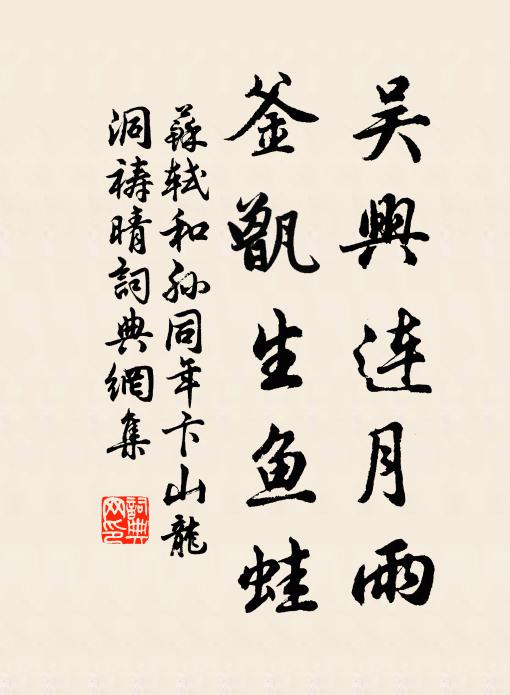 吴興连月雨
釜甑生鱼蛙
蘇轼和孙同年卞山龍
洞禱晴詞典網集
詞典网印